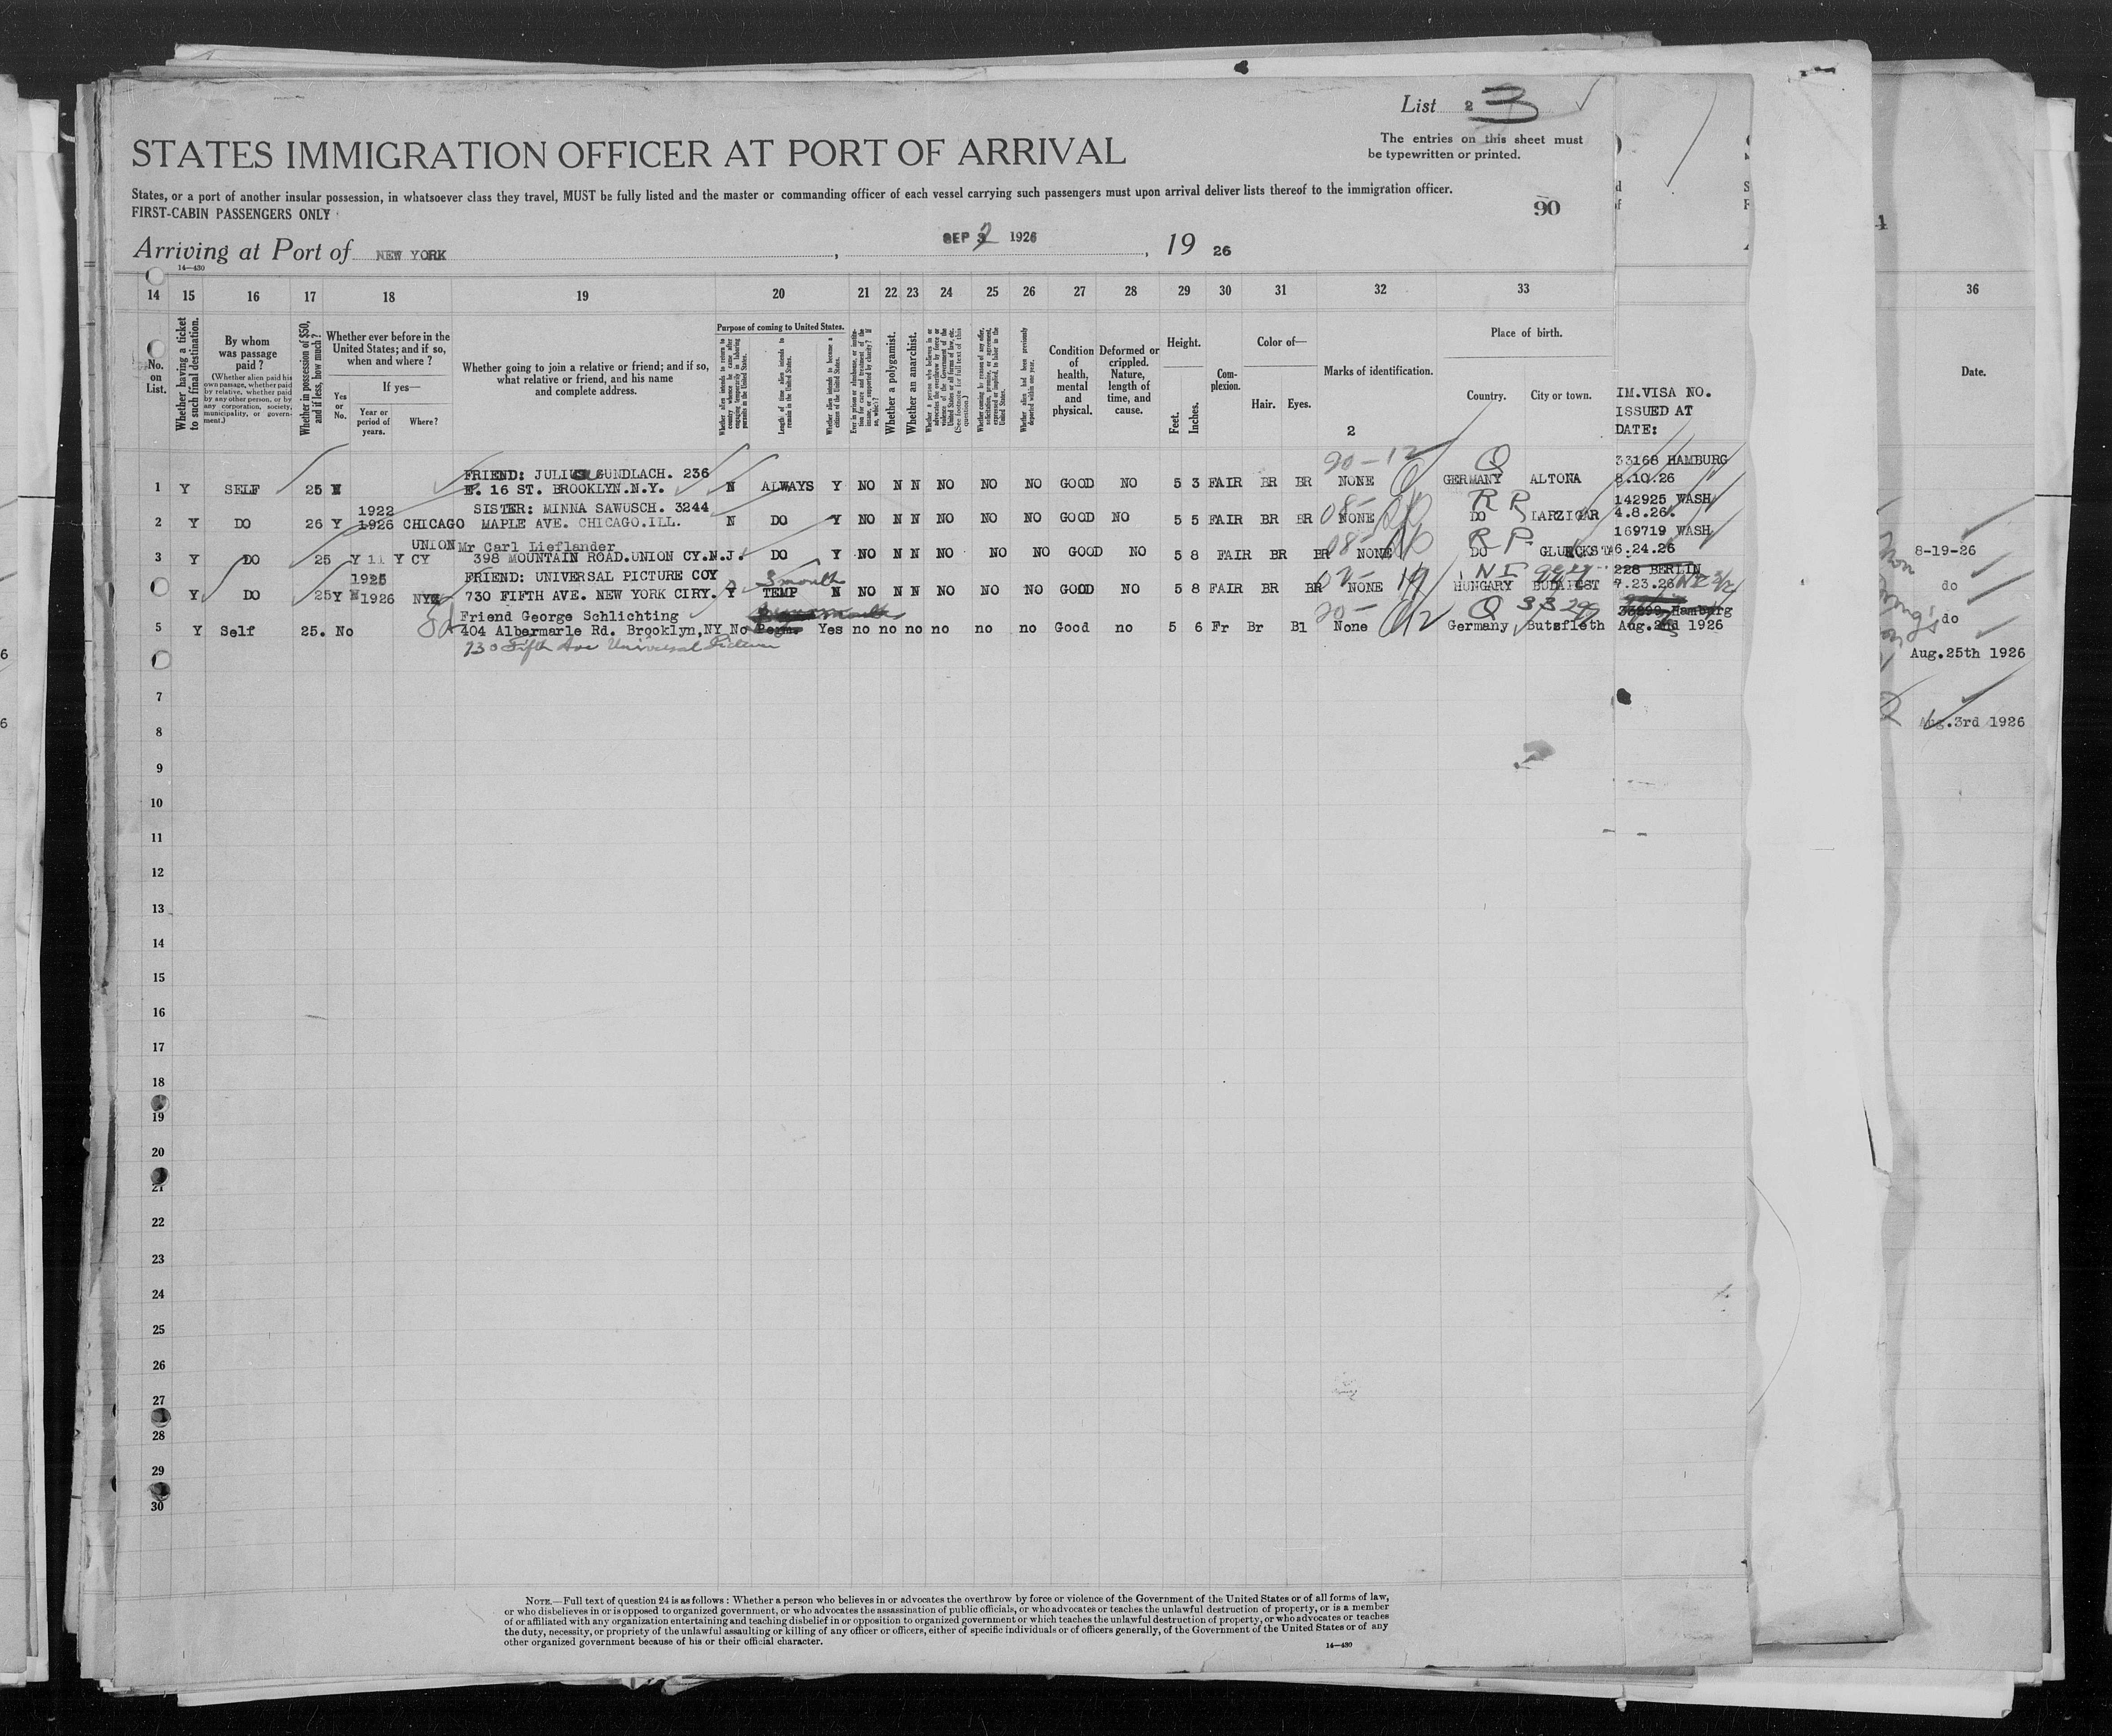 List 2 3
The entries on this sheet must
be typewritten or printed.
STATES IMMIGRATION OFFICER AT PORT OF ARRIVAL
States, or a port of another insular possession, in whatsoever class they travel, MUST be fully listed and the master or commanding officer of each vessel carrying such passengers must upon arrival deliver lists thereof to the immigration officer.
FIRST-CABIN PASSENGERS ONLY
90
Arriving at Port of NEW YORK, SEP 2 1926, 19 26
14—430
14 15 16 17 18 19 20 21 22 23 24 25 26 27 28 29 30 31 32 33
36
No. on List.
Whether having a ticket to such final destination.
By whom was passage paid?
(Whether alien paid his own passage, whether paid by relative, whether paid by any other person, or by any corporation, society, municipality, or government.)
Whether in possession of $50, and if less, how much?
Whether ever before in the United States; and if so, when and where?
Yes or No.
If yes—
Year or period of years.
Where?
Whether going to join a relative or friend; and if so, what relative or friend, and his name and complete address.
Purpose of coming to United States.
Whether alien intends to return to country whence he came after engaging temporarily in laboring pursuits in the United States.
Length of time alien intends to remain in the United States.
Whether alien intends to become a citizen of the United States.
Ever in prison or almshouse, or institution for care and treatment of the insane, or supported by charity? If so, which?
Whether a polygamist.
Whether an anarchist.
Whether coming by reason of any offer, solicitation, promise, or agreement, expressed or implied, to labor in the United States.
Whether alien had been previously deported within one year.
Condition of health, mental and physical.
Deformed or crippled. Nature, length of time, and cause.
Height.
Feet. Inches.
Complexion.
Color of—
Hair. Eyes.
Marks of identification.
2
Place of birth.
Country. City or town.
IM.VISA NO.
ISSUED AT
DATE:
Date.
FRIEND: JULIUS GUNDLACH. 236 20-12 Q 33168 HAMBURG
1 Y SELF 25 N E. 16 ST. BROOKLYN.N.Y. N ALWAYS Y NO N N NO NO NO GOOD NO 5 3 FAIR BR BR NONE GERMANY ALTONA 8.10.26
1922 SISTER: MINNA SAWUSCH. 3244 RP 142925 WASH
2 Y DO 26 Y 1926 CHICAGO MAPLE AVE. CHICAGO.ILL. N DO Y NO N N NO NO NO GOOD NO 5 5 FAIR BR BR NONE DO LARZIGAR 4.8.26.
UNION Mr Carl Lieflander RP 169719 WASH
3 Y DO 25 Y 11 Y CY 398 MOUNTAIN ROAD.UNION CY.N.J. DO Y NO N N NO NO NO GOOD NO 5 8 FAIR BR BR NONE DO GLUECKSTA 6.24.26
8-19-26
1925 FRIEND: UNIVERSAL PICTURE COY 3 month 228 BERLIN
Y DO 25 Y 1926 NYK 730 FIFTH AVE. NEW YORK CIRY. Y TEMP N NO N N NO NO NO GOOD NO 5 8 FAIR BR BR NONE HUNGARY BUDAPEST 7.23.26
do
Friend George Schlichting 33299 Hamburg
5 Y Self 25. No 404 Albermarle Rd. Brooklyn,NY No Perm. Yes no no no no no no Good no 5 6 Fr Br Bl None Germany Butzfleth Aug.2nd 1926
do
730 Fifth Ave Universal Picture
Aug.25th 1926
7
Aug.3rd 1926
8
9
10
11
12
13
14
15
16
17
18
19
20
21
22
23
24
25
26
27
28
29
30
NOTE.—Full text of question 24 is as follows: Whether a person who believes in or advocates the overthrow by force or violence of the Government of the United States or of all forms of law,
or who disbelieves in or is opposed to organized government, or who advocates the assassination of public officials, or who advocates or teaches the unlawful destruction of property, or is a member
of or affiliated with any organization entertaining and teaching disbelief in or opposition to organized government or which teaches the unlawful destruction of property, or who advocates or teaches
the duty, necessity, or propriety of the unlawful assaulting or killing of any officer or officers, either of specific individuals or of officers generally, of the Government of the United States or of any
other organized government because of his or their official character.
14—430